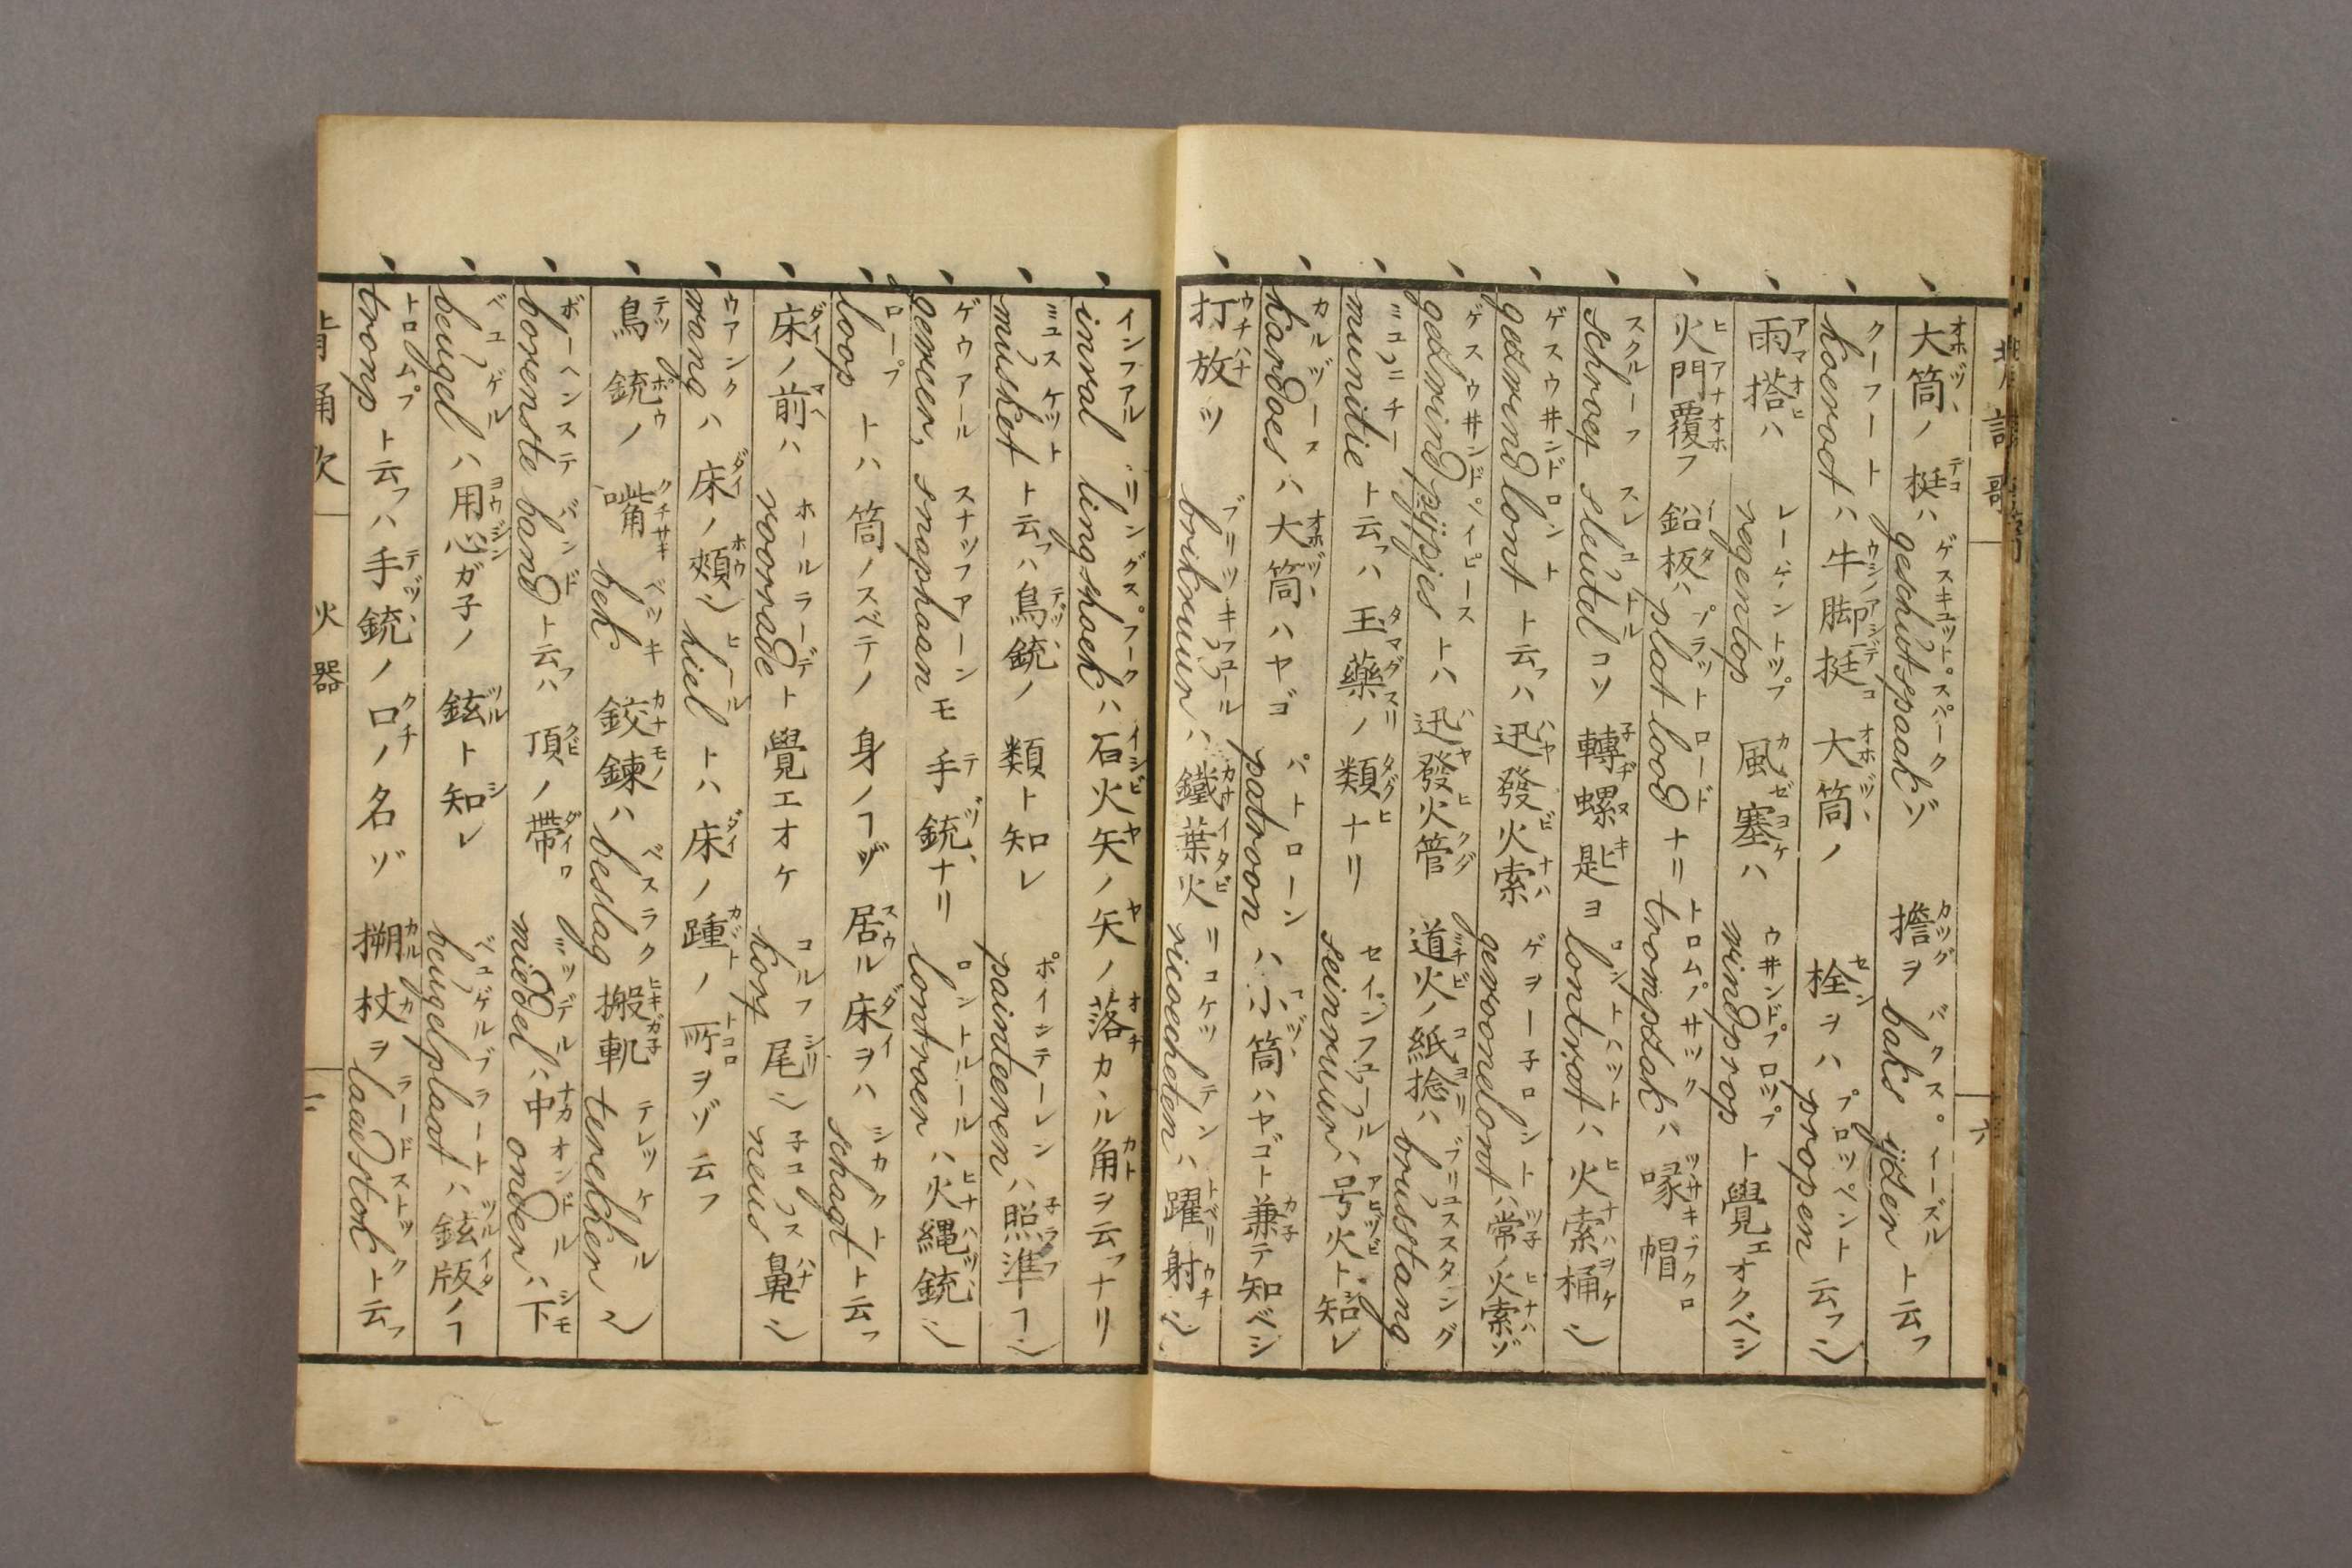 大筒ノ梃ハ geschutspaak ゾ 擔ヲ baks ijzer ト云フ
koevoet ハ牛脚挺 大筒ノ 栓ヲハ propen ト云フ
雨搭ハ regentop 風塞ハ windprop ト覺エオクベシ
火門覆フ鉛板ハ plat lood ナリ trompzak ハ 喙帽
schroef sleutel コソ轉螺匙ヨ lontvat ハ火索桶
gezwind lont ト云フハ迅發火索 gewoonelont ハ常ノ火索ゾ
gezwind pijpjes トハ迅發火管 道火ノ紙捻ハ brusstang
munitie ト云フハ玉藥ノ類ナリ seinvuur ハ号火ト知レ
kardoes ハ大筒ハヤゴ patroon ハ小筒ハヤゴト兼テ知ベシ
打放ツ brikvuur ハ鐵葉火 ricochetten ハ躍射
六
inval lingshoek ハ石火矢ノ矢ノ落カヽル角ヲ云フナリ
musket ト云フハ鳥銃ノ類ト知レ painteeren ハ照準
geweer, snaphaan モ手銃ナリ lontroer ハ火縄銃
loop トハ筒ノスベテノ身ノヿゾ 居ル床ヲハ schagt ト云フ
床ノ前ハ voorrade ト覺エオケ korf 尾 neus 鼻
wang ハ床ノ頰 hiel トハ床ノ踵ノ所ヲゾ云フ
鳥銃ノ嘴 bek 鉸鍊ハ beslag 搬軏 terekker
bovenste band ト云フハ頂ノ帶 middel ハ中 onder ハ下
beugel ハ用心ガ子ノ鉉ト知レ beugelplaat ハ鉉版ノヿ
tromp ト云フハ手銃ノ口ノ名ゾ 搠杖ヲ laadstok ト云フ
火器